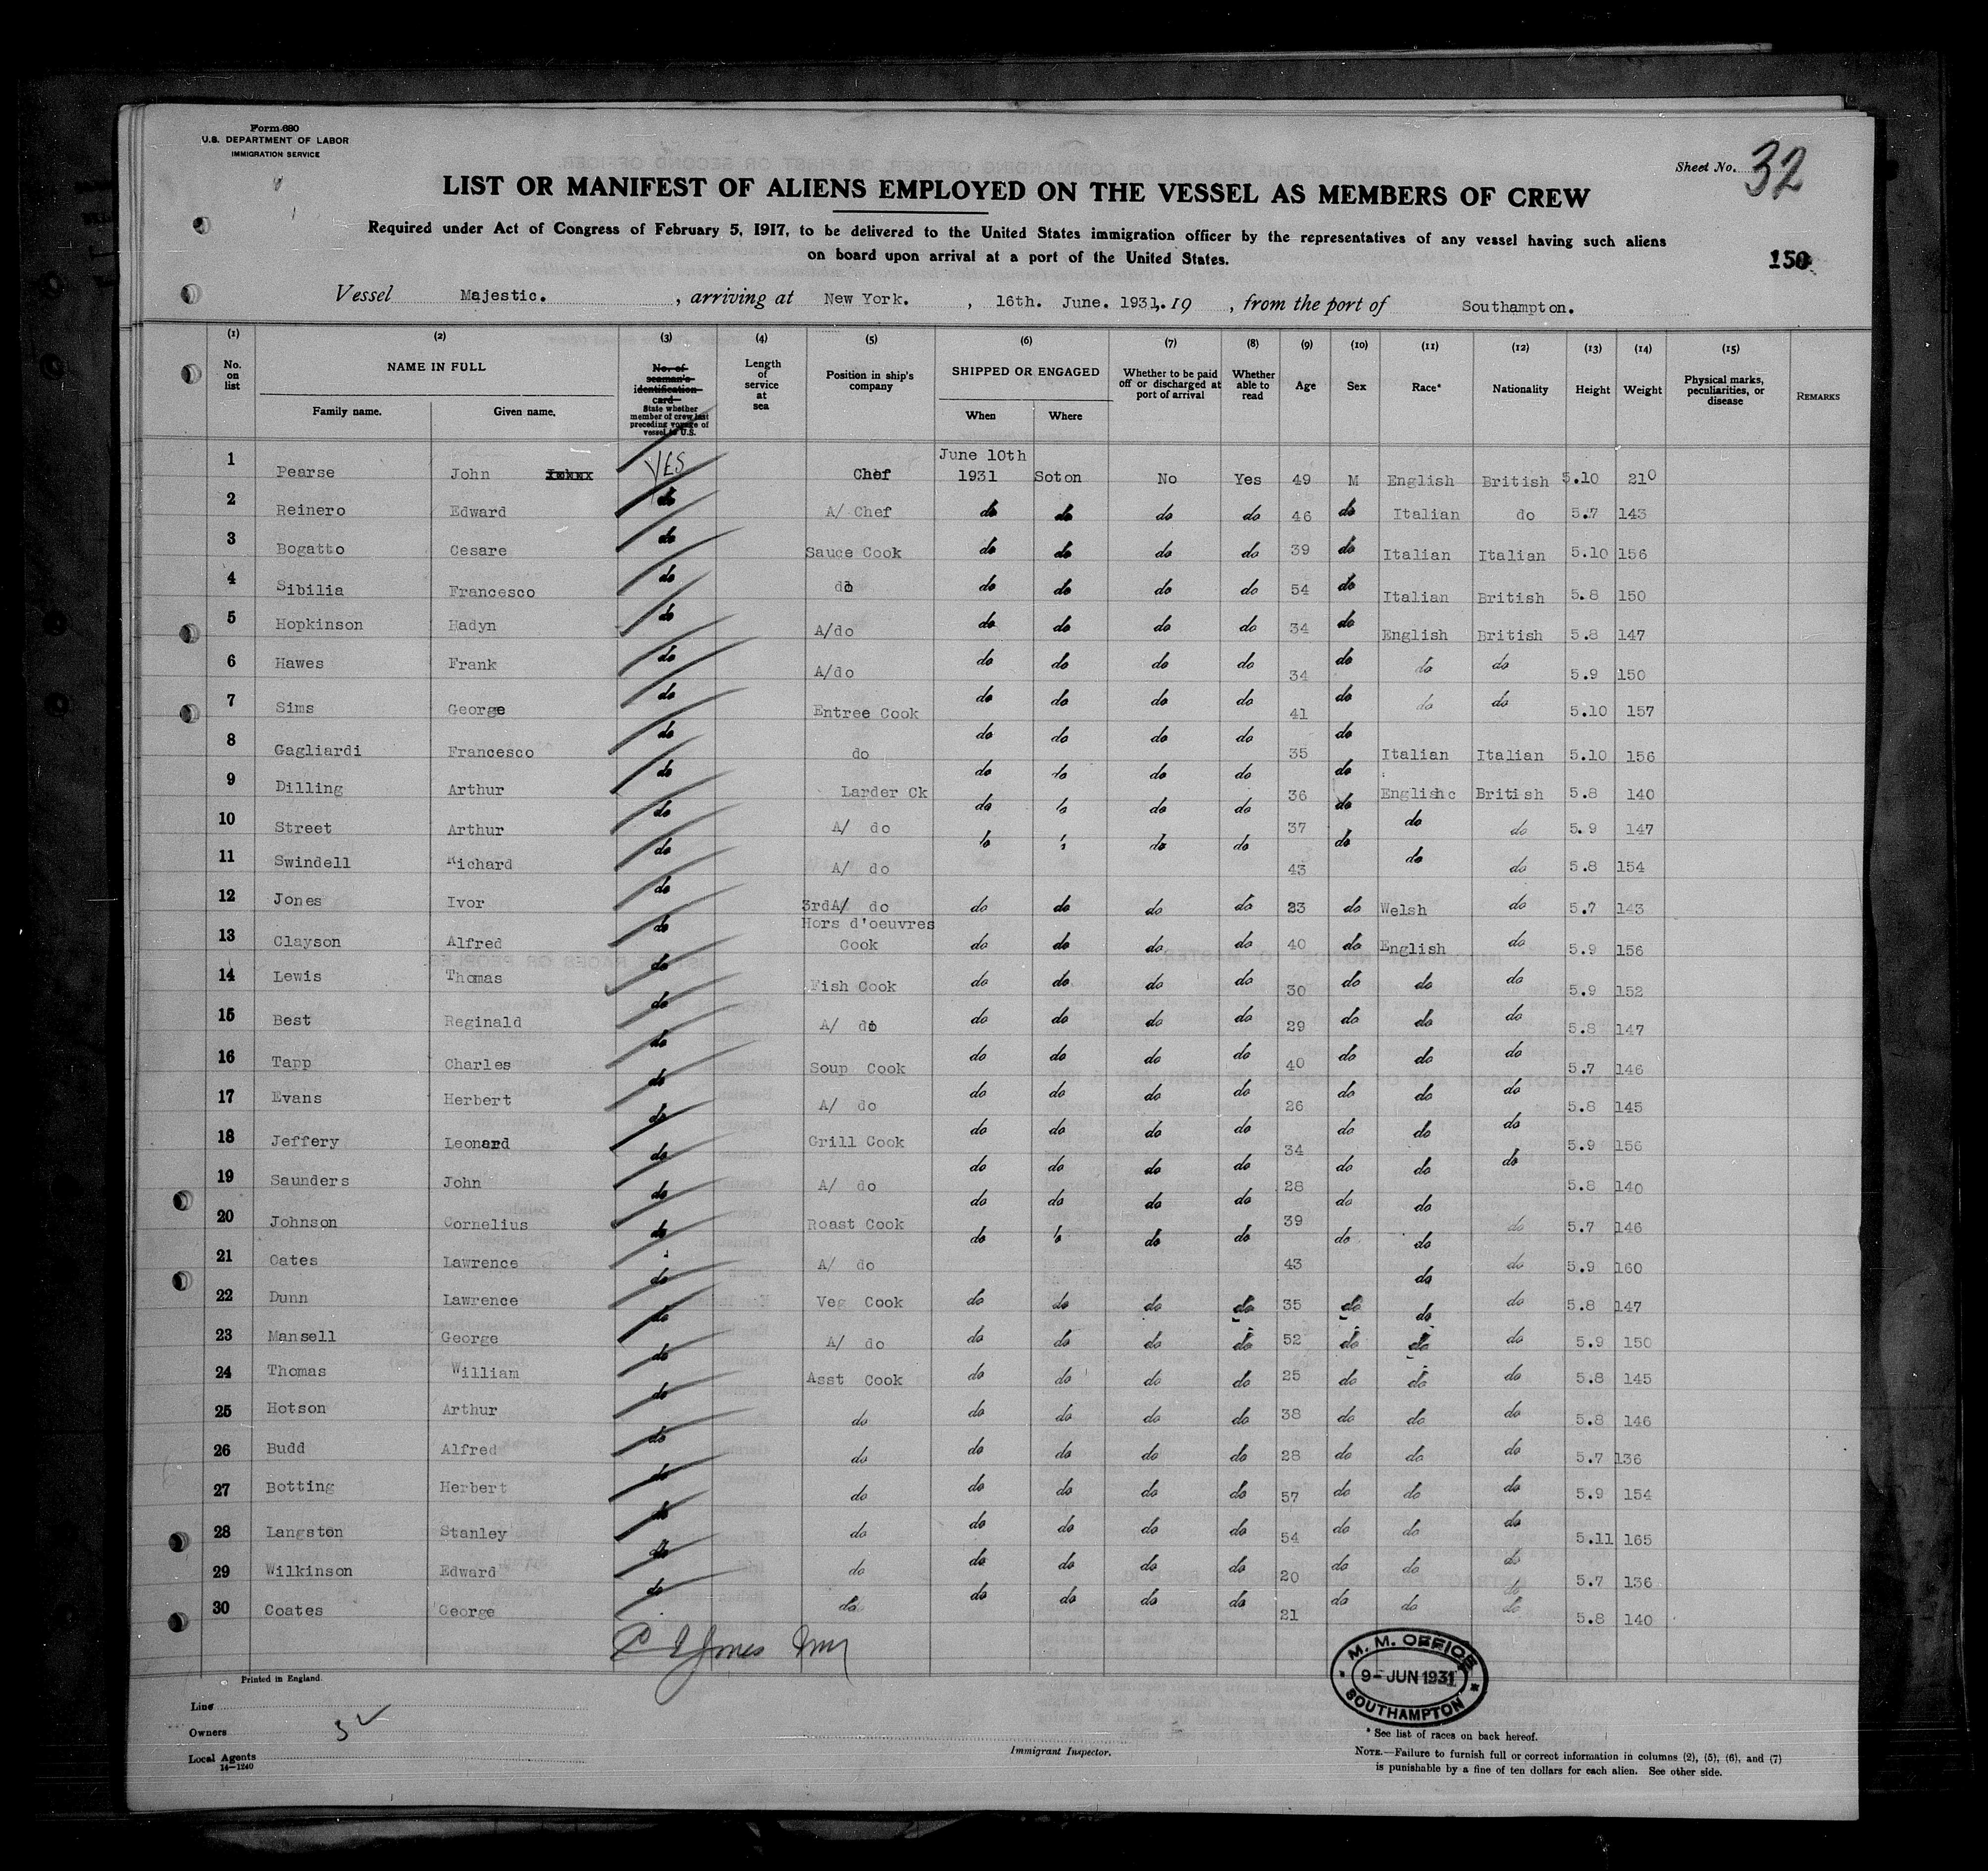 Form 680
U.S. DEPARTMENT OF LABOR
IMMIGRATION SERVICE
Sheet No. 32
LIST OR MANIFEST OF ALIENS EMPLOYED ON THE VESSEL AS MEMBERS OF CREW
Required under Act of Congress of February 5, 1917, to be delivered to the United States immigration officer by the representatives of any vessel having such aliens
on board upon arrival at a port of the United States.
150
Vessel Majestic. , arriving at New York. , 16th. June. 1931,.19 , from the port of Southampton.
(1) (2) (3) (4) (5) (6) (7) (8) (9) (10) (11) (12) (13) (14) (15)
No. on list NAME IN FULL Family name. Given name. No. of seaman's identification card State whether member of crew last preceding voyage of vessel to U.S. Length of service at sea Position in ship's company SHIPPED OR ENGAGED When Where Whether to be paid off or discharged at port of arrival Whether able to read Age Sex Race* Nationality Height Weight Physical marks, peculiarities, or disease REMARKS
1 Pearse John YES Chef June 10th 1931 Soton No Yes 49 M English British 5.10 210
2 Reinero Edward do A/ Chef do do do do 46 do Italian do 5.7 143
3 Bogatto Cesare do Sauce Cook do do do do 39 do Italian Italian 5.10 156
4 Sibilia Francesco do do do do do do 54 do Italian British 5.8 150
5 Hopkinson Hadyn do A/do do do do do 34 do English British 5.8 147
6 Hawes Frank do A/do do do do do 34 do do do 5.9 150
7 Sims George do Entree Cook do do do do 41 do do do 5.10 157
8 Gagliardi Francesco do do do do do do 35 do Italian Italian 5.10 156
9 Dilling Arthur do Larder Ck do do do do 36 do English British 5.8 140
10 Street Arthur do A/ do do do do do 37 do do do 5.9 147
11 Swindell Richard do A/ do do do do do 43 do do do 5.8 154
12 Jones Ivor do 3rdA/ do do do do do 23 do Welsh do 5.7 143
13 Clayson Alfred do Hors d'oeuvres Cook do do do do 40 do English do 5.9 156
14 Lewis Thomas do Fish Cook do do do do 30 do do do 5.9 152
15 Best Reginald do A/ do do do do do 29 do do do 5.8 147
16 Tapp Charles do Soup Cook do do do do 40 do do do 5.7 146
17 Evans Herbert do A/ do do do do do 26 do do do 5.8 145
18 Jeffery Leonard do Grill Cook do do do do 34 do do do 5.9 156
19 Saunders John do A/ do do do do do 28 do do do 5.8 140
20 Johnson Cornelius do Roast Cook do do do do 39 do do do 5.7 146
21 Oates Lawrence do A/ do do do do do 43 do do do 5.9 160
22 Dunn Lawrence do Veg Cook do do do do 35 do do do 5.8 147
23 Mansell George do A/ do do do do do 52 do do do 5.9 150
24 Thomas William do Asst Cook do do do do 25 do do do 5.8 145
25 Hotson Arthur do do do do do do 38 do do do 5.8 146
26 Budd Alfred do do do do do do 28 do do do 5.7 136
27 Botting Herbert do do do do do do 57 do do do 5.9 154
28 Langston Stanley do do do do do do 54 do do do 5.11 165
29 Wilkinson Edward do do do do do do 20 do do do 5.7 136
30 Coates George do do do do do do 21 do do do 5.8 140
Jones
Printed in England.
Line
Owners
Local Agents
14—1240
Immigrant Inspector.
M. M. OFFICE
9- JUN 1931
SOUTHAMPTON
* See list of races on back hereof.
NOTE.—Failure to furnish full or correct information in columns (2), (5), (6), and (7)
is punishable by a fine of ten dollars for each alien. See other side.